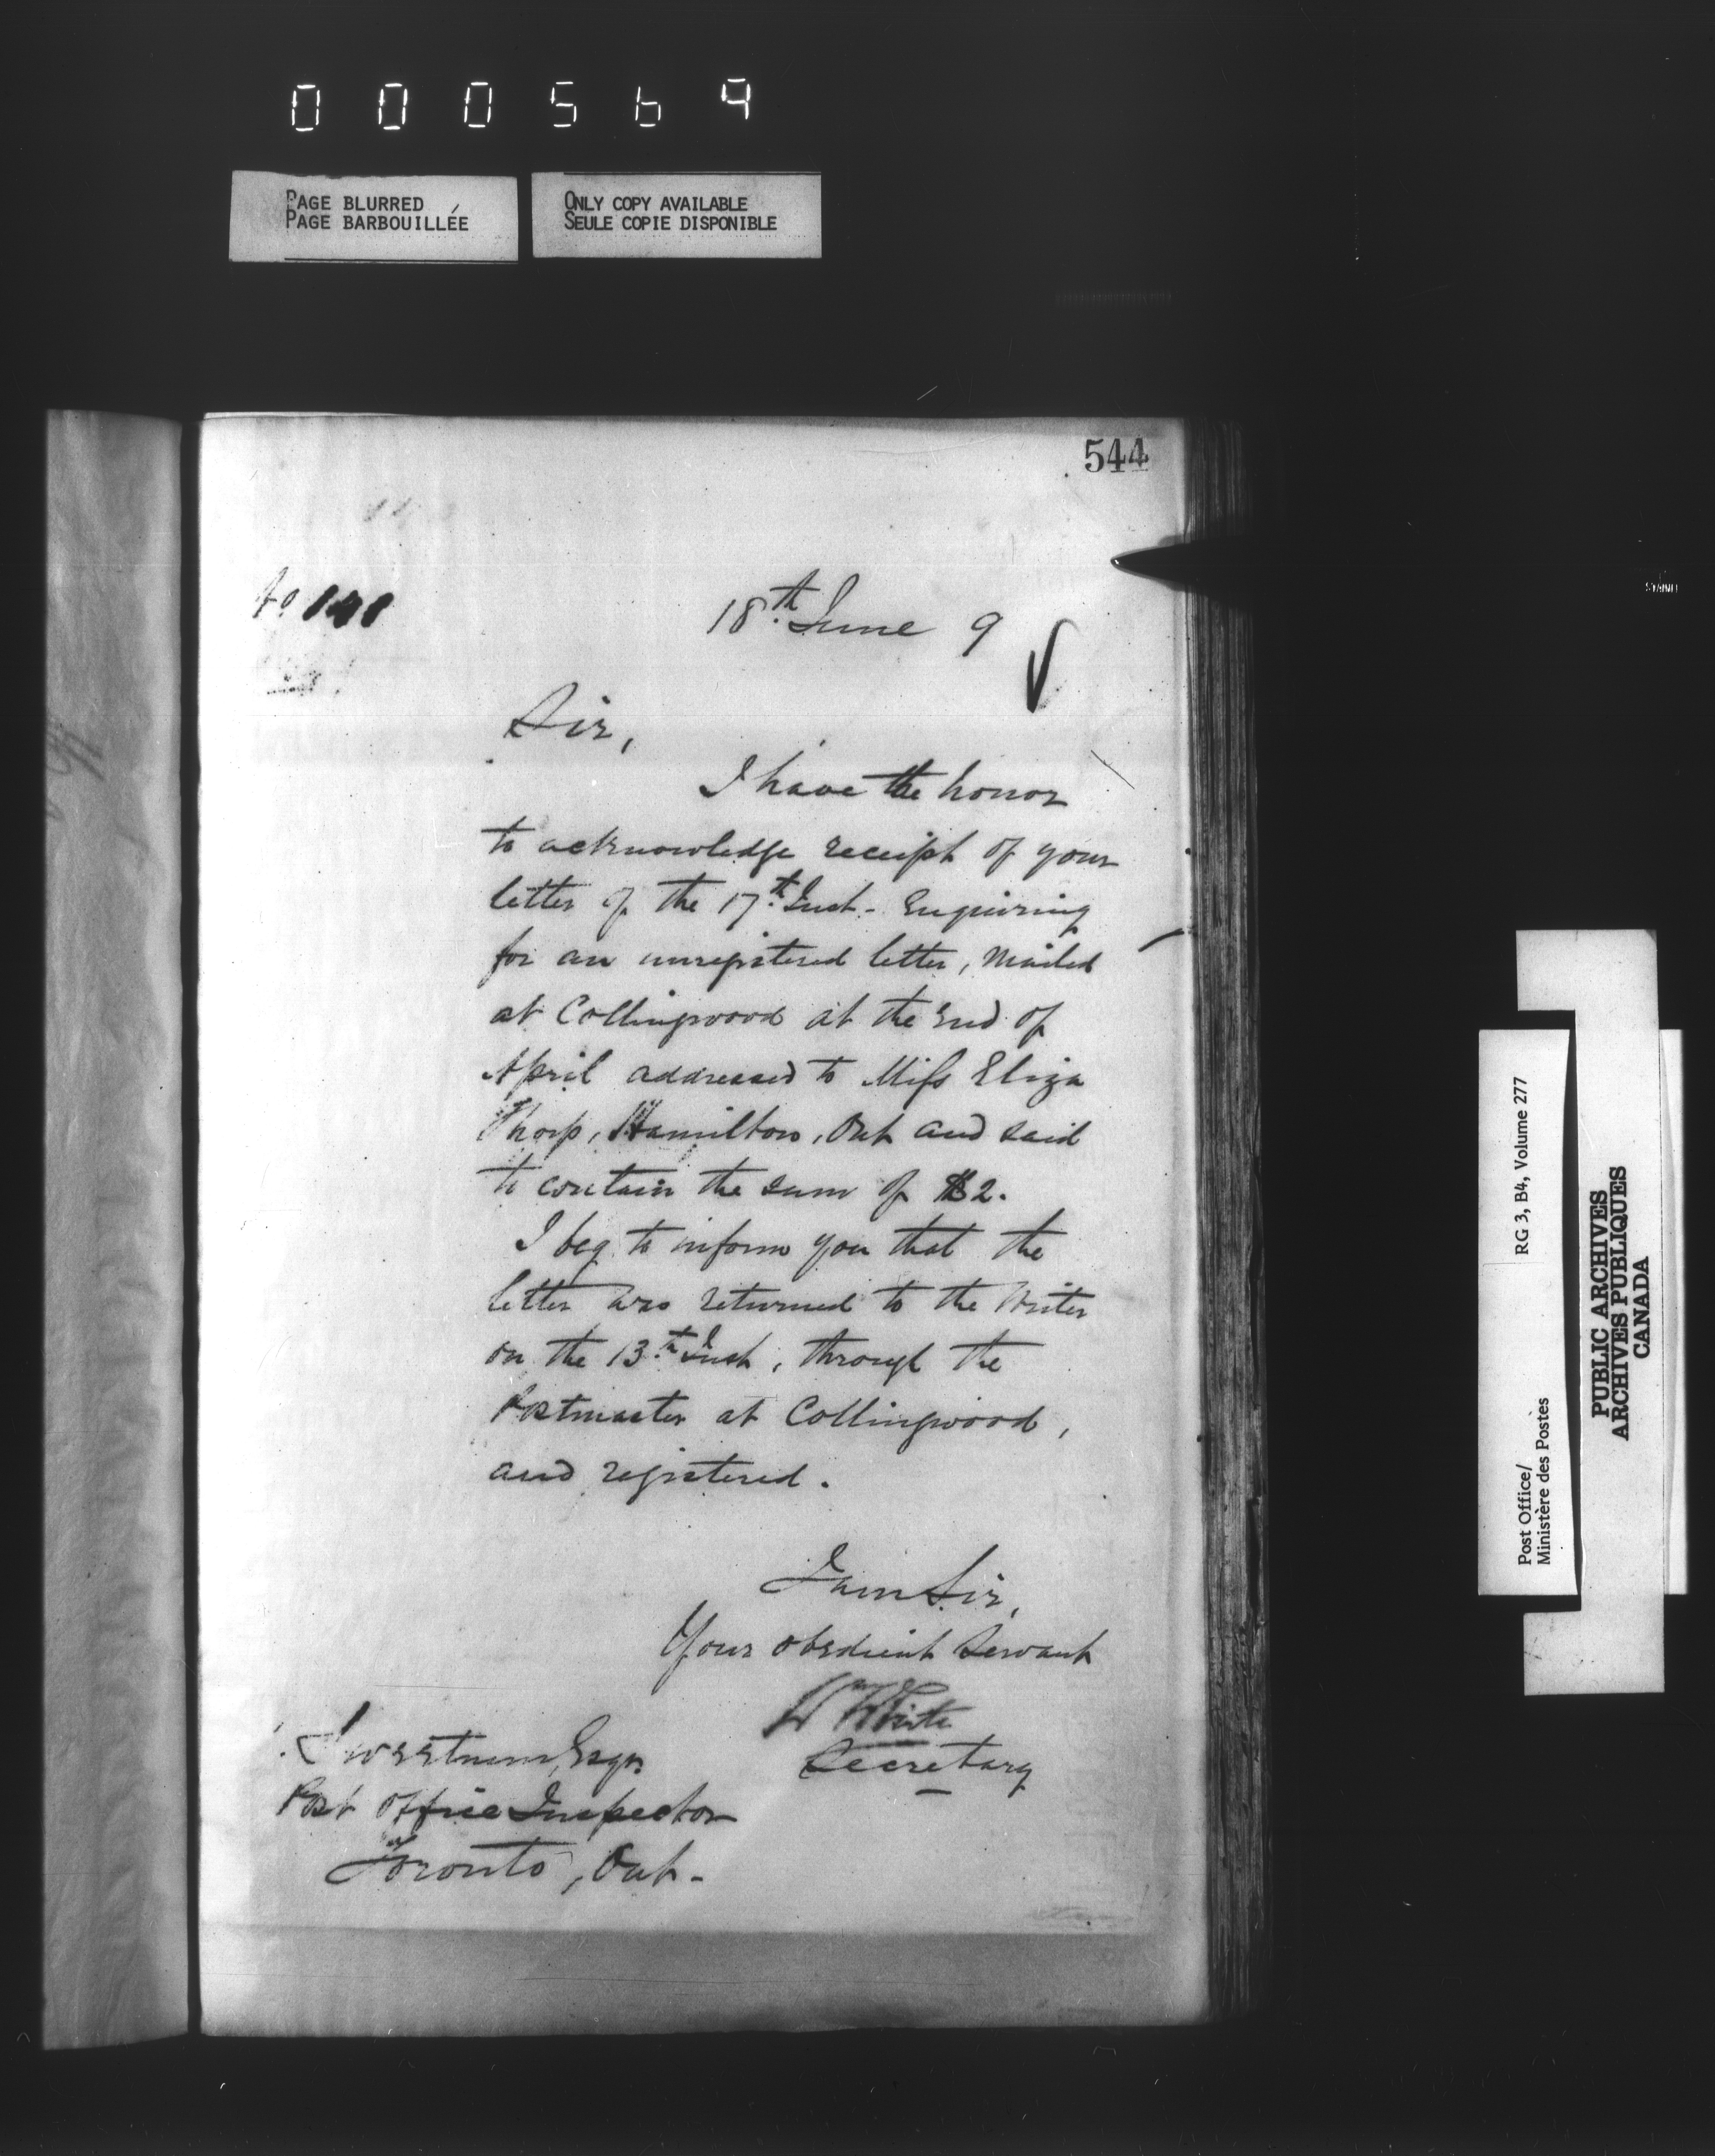 000569
PAGE BLURRED
PAGE BARBOUILLÉE
ONLY COPY AVAILABLE
SEULE COPIE DISPONIBLE
544
18th June 9
Sir,
I have the honor
to acknowledge receipt of your
letter of the 17th Inst- Enquiring
for an unregistered letter, Mailed
at Collingwood at the End of
April addressed to Miss Eliza
Thorp, Hamilton, Ont and said
to contain the sum of $2.
I beg to inform you that the
letter was returned to the Writer
on the 13th Inst, through the
Postmaster at Collingwood,
and registered.
I am Sir,
Your obedient Servant
W White
Secretary
Sweetnam, Esqr.
Post Office Inspector
Toronto, Ont-
RG 3, B4, Volume 277
Post Office/
Ministère des Postes
PUBLIC ARCHIVES
ARCHIVES PUBLIQUES
CANADA